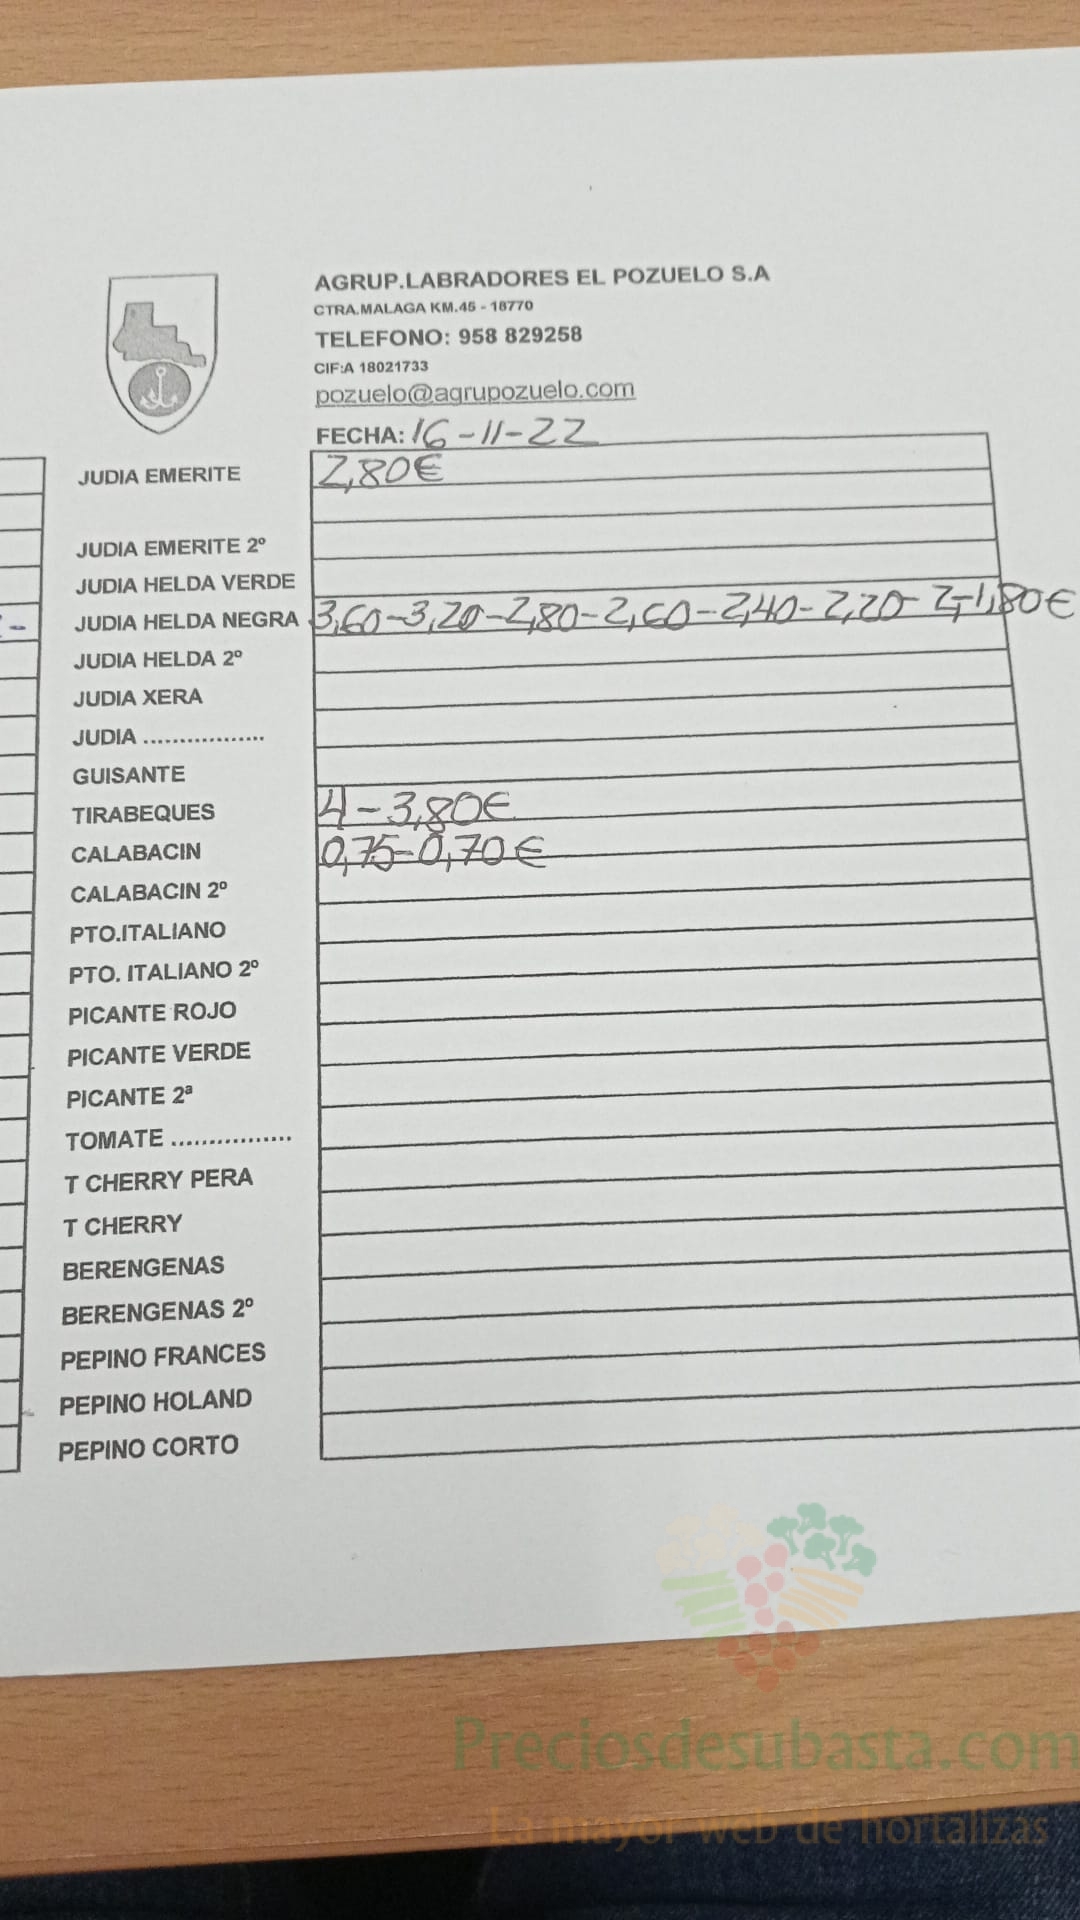 AGRUP.LABRADORES EL POZUELO S.A
CTRA.MALAGA KM.45 - 18770
TELEFONO: 958 829258
CIF:A 18021733
pozuelo@agrupozuelo.com
FECHA: 16-11-22
JUDIA EMERITE 2,80€
JUDIA EMERITE 2º
JUDIA HELDA VERDE
JUDIA HELDA NEGRA 3,60-3,20-2,80-2,60-2,40-2,20-2,-1,80€
JUDIA HELDA 2º
JUDIA XERA
JUDIA .................
GUISANTE
TIRABEQUES 4-3,80€
CALABACIN 0,75-0,70€
CALABACIN 2º
PTO.ITALIANO
PTO. ITALIANO 2º
PICANTE ROJO
PICANTE VERDE
PICANTE 2ª
TOMATE ................
T CHERRY PERA
T CHERRY
BERENGENAS
BERENGENAS 2º
PEPINO FRANCES
PEPINO HOLAND
PEPINO CORTO
Preciosdesubasta.com
La mayor web de hortalizas